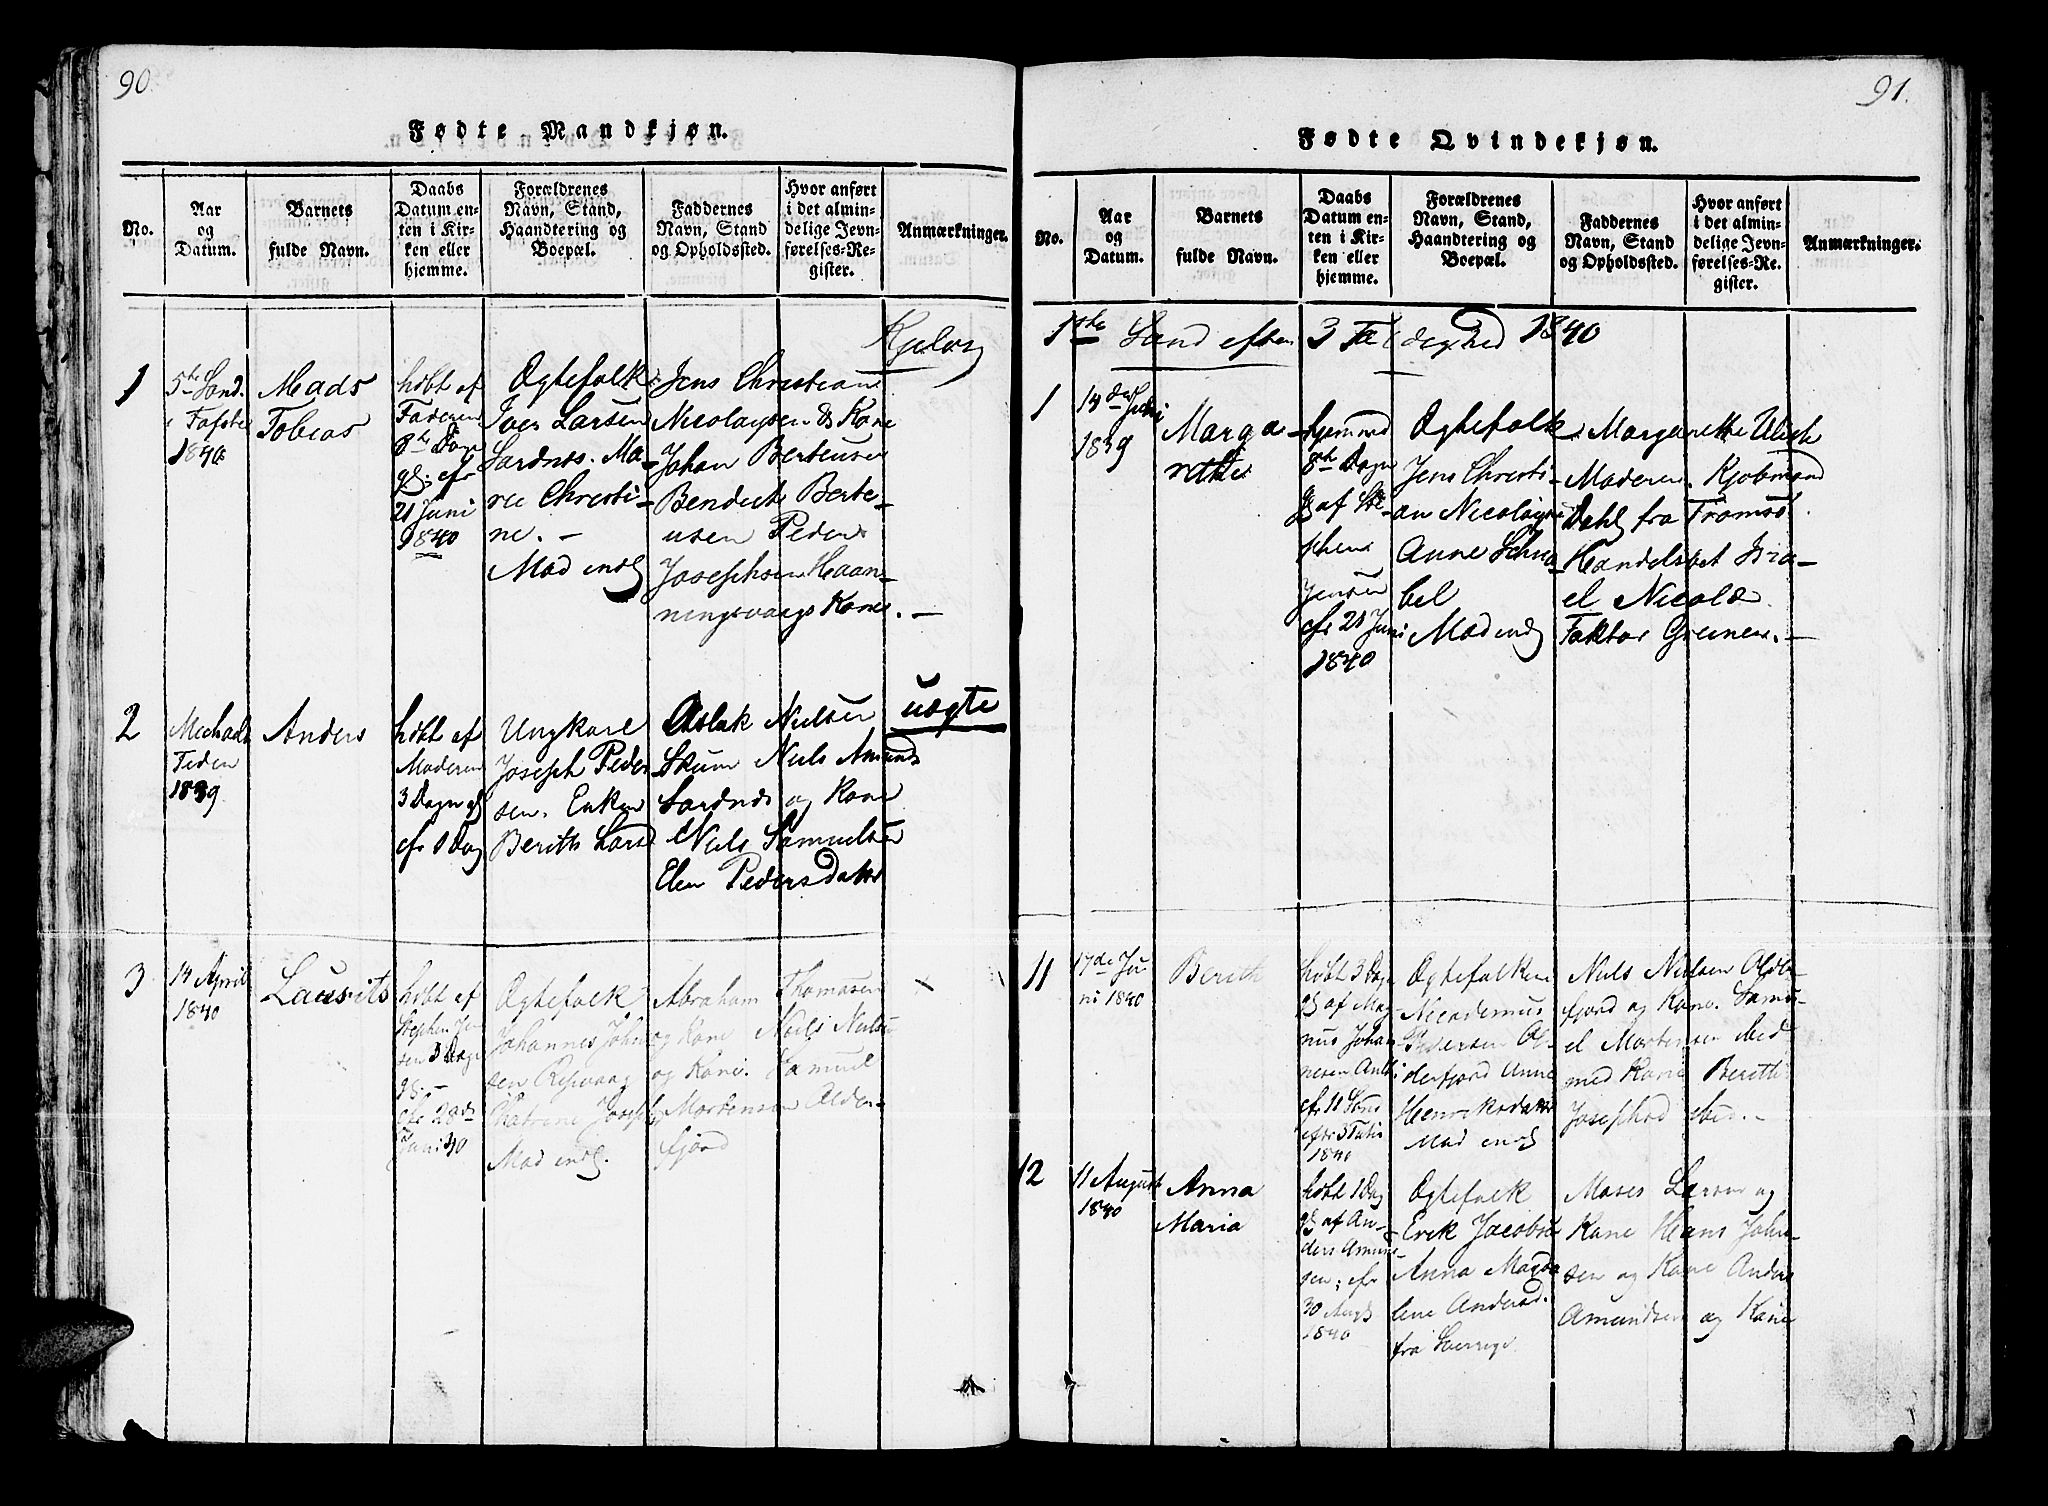 90
Fødte Mandkjøn.
No.
Aar
og
Datum.
Barnets
fulde Navn.
Daabs
Datum en-
ten i Kir-
ken eller
hjemme.
Forældrenes
Navn, Stand,
Haandtering og
Boepæl.
Faddernes
Navn, Stand
og Opholdssted.
Hvor anført
i det almin-
delige Jevn-
førelses-Re-
gister.
Anmærkninger.
Kjelvig
1
5te Sønd.
i Faste
1840
Mads
Tobias
hdøbt af
Faderen
8te Dage
gl: cfr
21 Juni
1840
Ægtefolk
Iver Larsen
Sardnæs. Ma-
rie Christi-
ne. -
Mad indl
Jens Christian
Nicolaysen & Kone
Johan Berteusen
Bendict Berte-
usen Peder
Josephsen Haan-
ningsvaags Kone. -
2
Michaels
Tiden
1839
Anders
hdøbt af
Moderen
3 Dage gl
cfr 1 Dag
Ungkarl
Joseph Peder
sen. Enken
Berith Larsd
Aslak Nielsen
Skum Niels Amunds
Sardnæs og Kone
Niels Samuelsen
Elen Pedersdatter
uægte
3
14 April
1840
Lausrits
hdøbt af
Stephen Jo-
sen 3 Dage
gl. -
cfr 20de
Juni 40
Ægtefolk
Johannes John
sen Risvaag
Katrine Josephsd
Mad indl.
Abraham Thomasen
og Kone Niels Nielsen
og Kone. Samuel
Mortensen Alder-
fjord
91.
Fødte Qvindekjøn.
No.
Aar
og
Datum.
Barnets
fulde Navn.
Daabs
Datum en-
ten i Kir-
ken eller
hjemme.
Forældrenes
Navn, Stand,
Haandtering og
Boepæl.
Faddernes
Navn, Stand
og Opholdssted.
Hvor anført
i det almin-
delige Jevn-
førelses-Re-
gister.
Anmærkninger.
1ste Sønd efter 3 1840
1
14de Juni
1839
Marga-
rethe
hjemmed
8te Dagn
gl af Ste-
phen
Jensen
cfr 21 Juni
1840
Ægtefolk
Jens Christi-
an Nicolaysen
Anne Schna-
bel
Mad indl
Margarethe Ulich
Moderen. Kjøbmand
Dahl fra Tromsø
Handelsbet Isra-
el Nicolæ
Faktor Greiner. -
11
17de Ju
ni 1840
Berith
hdøbt 3 Dage
gl af Mag-
nus Johan-
nesen
cfr 11 Sønd
efter
1840
Ægtefolkene
Nicodemus
Pedersen Al-
derfjord Anne
Henriksdatter
Mad indl
Niels Nielsen Alder
fjord og Kone. Samu-
el Mortensen ibid
med Kone Berith
Josephsd ibid. -
12
11 August
1840
Anna
Maria
hdøbt 1 Dag
gl af An-
ders Amund-
sen; cfr
30 Augs
1840
Ægtefolk
Erik Jacobsen
Anna Magda
lene Andersd.
fra Sverrige
Moses Larsen og
Kone Hans John-
sen og Kone Anders
Amundsen og Kone